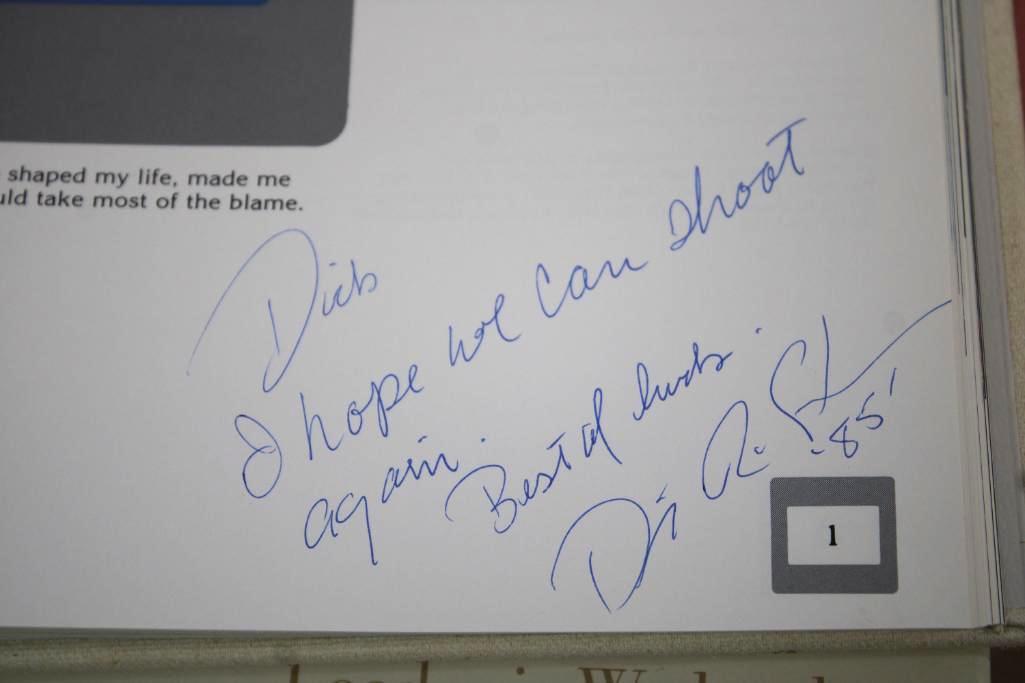 shaped my life, made me
uld take most of the blame.
Dick
I hope we can shoot
again.
Best of luck.
85'
1